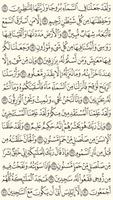 وَلَقَدْ جَعَلْنَا فِى ٱلسَّمَآءِ بُرُوجًا وَزَيَّنَّٰهَا لِلنَّٰظِرِينَ ١٦
وَحَفِظْنَٰهَا مِن كُلِّ شَيْطَٰنٍ رَّجِيمٍ ١٧ إِلَّا مَنِ ٱسْتَرَقَ ٱلسَّمْعَ
فَأَتْبَعَهُۥ شِهَابٌ مُّبِينٌ ١٨ وَٱلْأَرْضَ مَدَدْنَٰهَا وَأَلْقَيْنَا فِيهَا
رَوَٰسِىَ وَأَنۢبَتْنَا فِيهَا مِن كُلِّ شَىْءٍ مَّوْزُونٍ ١٩ وَجَعَلْنَا لَكُمْ
فِيهَا مَعَٰيِشَ وَمَن لَّسْتُمْ لَهُۥ بِرَٰزِقِينَ ٢٠ وَإِن مِّن شَىْءٍ
إِلَّا عِندَنَا خَزَآئِنُهُۥ وَمَا نُنَزِّلُهُۥٓ إِلَّا بِقَدَرٍ مَّعْلُومٍ ٢١ وَأَرْسَلْنَا
ٱلرِّيَٰحَ لَوَٰقِحَ فَأَنزَلْنَا مِنَ ٱلسَّمَآءِ مَآءً فَأَسْقَيْنَٰكُمُوهُ
وَمَآ أَنتُمْ لَهُۥ بِخَٰزِنِينَ ٢٢ وَإِنَّا لَنَحْنُ نُحْىِۦ وَنُمِيتُ وَنَحْنُ
ٱلْوَٰرِثُونَ ٢٣ وَلَقَدْ عَلِمْنَا ٱلْمُسْتَقْدِمِينَ مِنكُمْ وَلَقَدْ عَلِمْنَا
ٱلْمُسْتَـْٔخِرِينَ ٢٤ وَإِنَّ رَبَّكَ هُوَ يَحْشُرُهُمْ إِنَّهُۥ حَكِيمٌ عَلِيمٌ ٢٥
وَلَقَدْ خَلَقْنَا ٱلْإِنسَٰنَ مِن صَلْصَٰلٍ مِّنْ حَمَإٍ مَّسْنُونٍ ٢٦ وَٱلْجَآنَّ
خَلَقْنَٰهُ مِن قَبْلُ مِن نَّارِ ٱلسَّمُومِ ٢٧ وَإِذْ قَالَ رَبُّكَ لِلْمَلَٰٓئِكَةِ
إِنِّى خَٰلِقٌۢ بَشَرًا مِّن صَلْصَٰلٍ مِّنْ حَمَإٍ مَّسْنُونٍ ٢٨ فَإِذَا سَوَّيْتُهُۥ
وَنَفَخْتُ فِيهِ مِن رُّوحِى فَقَعُوا۟ لَهُۥ سَٰجِدِينَ ٢٩ فَسَجَدَ ٱلْمَلَٰٓئِكَةُ كُلُّهُمْ
أَجْمَعُونَ ٣٠ إِلَّآ إِبْلِيسَ أَبَىٰٓ أَن يَكُونَ مَعَ ٱلسَّٰجِدِينَ ٣١